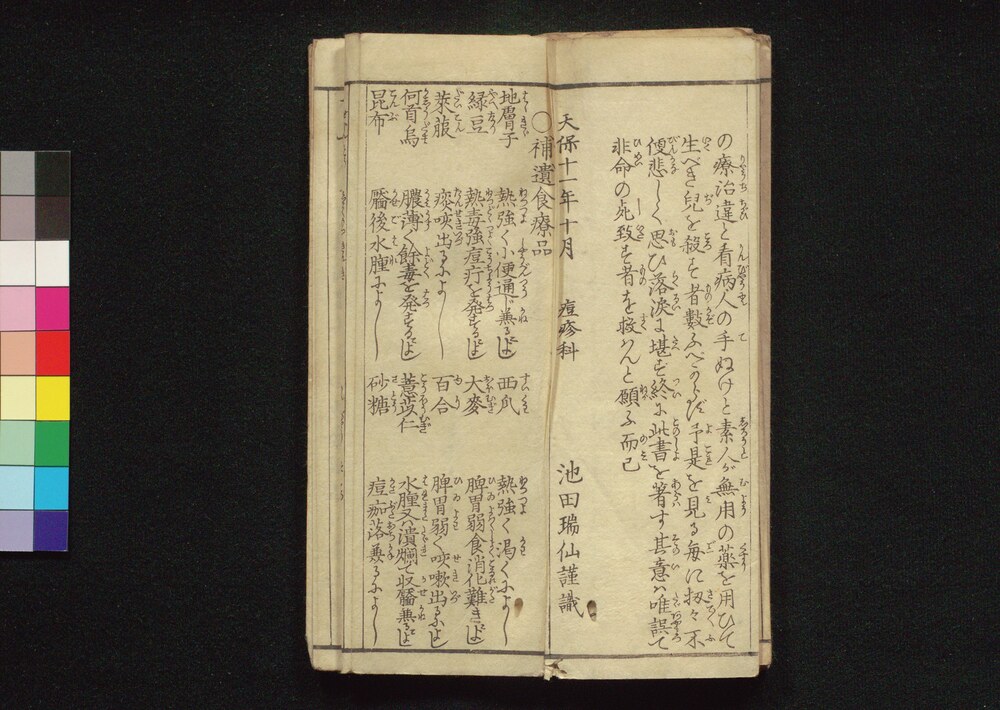 の療治違と看病人の手ぬけと素人が無用の薬を用ひて
生べき兒を殺す者數ふべからず予是を見る毎に扨々不
便悲しく思ひ落涙に堪ず終に此書を著す其意ハ唯誤て
非命の死致す者を救はんと願ふ而已
天保十一年十月 痘疹科 池田瑞仙謹識
○補遺食療品
地膚子 熱強く小便通じ兼るによし 西瓜 熱強く渇くによし
緑豆 熱毒強痘疔を発するによし 大麥 脾胃弱食消化難きによし
萊菔 痰咳出るによし 百合 脾胃弱く咳嗽出るによし
何首烏 膿薄く餘毒を発するによし 薏苡仁 水腫又ハ潰爛て収靨兼るによし
昆布 靨後水腫によし 砂糖 痘痂落兼るによし